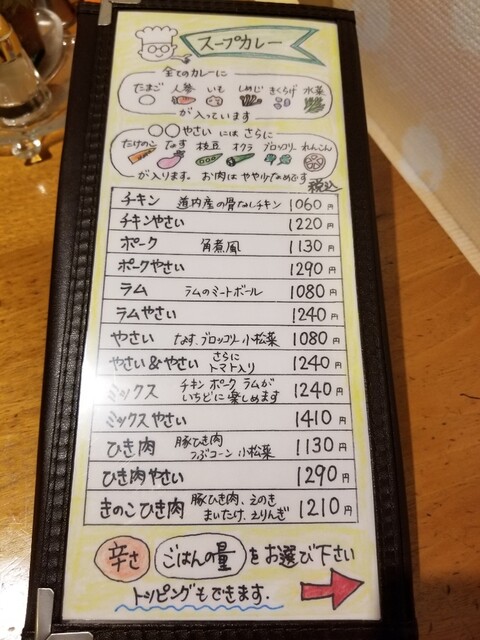 スープカレー
全てのカレーに
たまご 人参 いも しめじ きくらげ 水菜
が入っています
○○やさい にはさらに
たけのこ なす 枝豆 オクラ ブロッコリー れんこん
が入ります。お肉はやや少なめです
税込
チキン 道内産の骨なしチキン 1060円
チキンやさい 1220円
ポーク 角煮風 1130円
ポークやさい 1290円
ラム ラムのミートボール 1080円
ラムやさい 1240円
やさい なす、ブロッコリー 小松菜 1080円
やさい&やさい さらに トマト入り 1240円
ミックス チキン ポーク ラムが いちどに楽しめます 1240円
ミックスやさい 1410円
ひき肉 豚ひき肉 つぶコーン 小松菜 1130円
ひき肉やさい 1290円
きのこひき肉 豚ひき肉、えのき まいたけ、えりんぎ 1210円
辛さ ごはんの量 をお選び下さい
トッピングもできます.